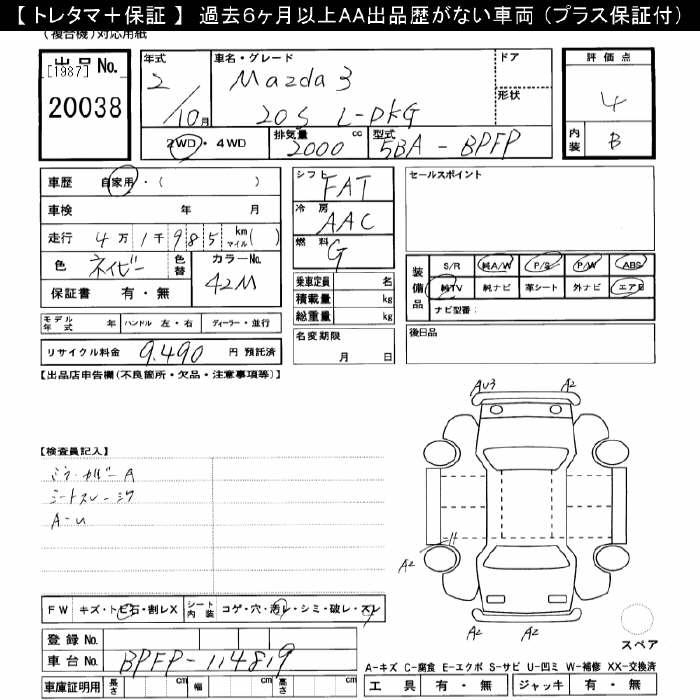 【 トレタマ＋保証 】 過去6ヶ月以上AA出品歴がない車両 (プラス保証付)
(複合機) 対応用紙
出品 [1987] No. 20038
年式 2/10月
車名・グレード Mazda3 20S L-PKG
ドア
形状
2WD・4WD
排気量 2000 cc
型式 5BA - BPFP
評価点 4
内装 B
車歴 自家用・( )
車検 年 月
走行 4万1千985 km マイル( )
色 ネイビー 色替
カラーNo. 42M
保証書 有・無
シフト FAT
冷房 AAC
燃料 G
乗車定員 名
積載量 kg
総重量 kg
名変期限 月 日
セールスポイント
装備品 S/R 純A/W P/S P/W ABS
純TV 純ナビ 革シート 外ナビ エアB
ナビ型番：
後日品
モデル年式 年 ハンドル 左・右 ディーラー・並行
リサイクル料金 9,490 円 預託済
【出品店申告欄(不良箇所・欠品・注意事項等)】
【検査員記入】
ミラーカバーA
シートスレ・シワ
A-U
AU3 A2
A2
A2 A2
スペア
FW キズ・トビ石・割レX シート内装 コゲ・穴・汚レ・シミ・破レ・スレ
登録 No.
車台 No. BPFP-114819
車庫証明用 長さ cm 幅 cm 高さ cm
A-キズ C-腐食 E-エクボ S-サビ U-凹ミ W-補修 XX-交換済
工具 有・無 ジャッキ 有・無